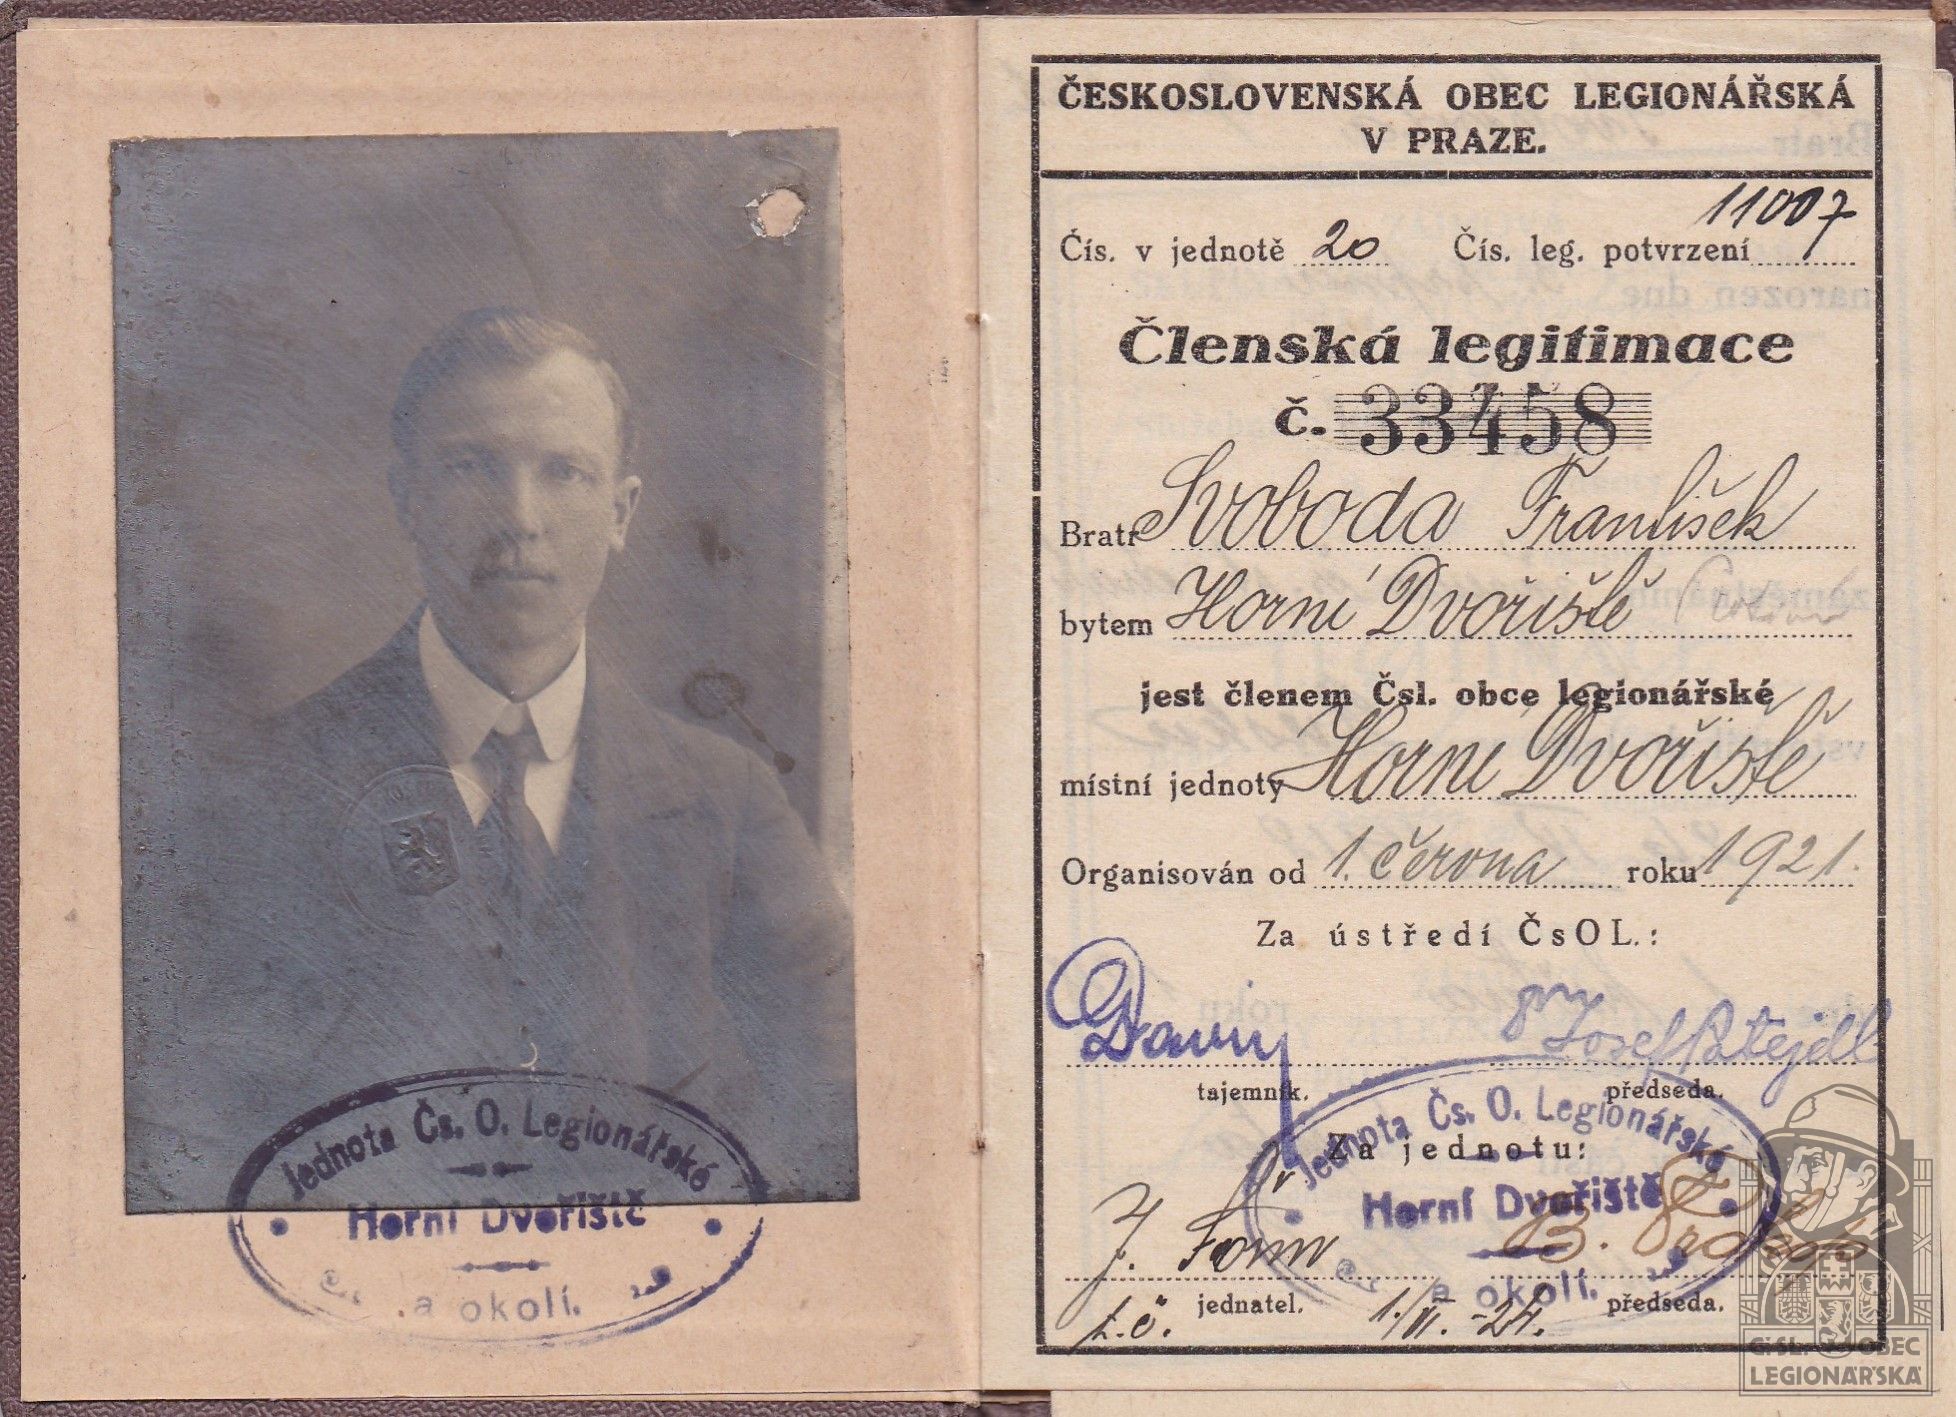 Jednota Čs. O. Legionářské
Horní Dvořiště
a okolí.
ČESKOSLOVENSKÁ OBEC LEGIONÁŘSKÁ
V PRAZE.
Čís. v jednotě 20 Čís. leg. potvrzení 11007
Členská legitimace
č. 33458
Bratr Svoboda František
bytem Horní Dvořiště
jest členem Čsl. obce legionářské
místní jednoty Horní Dvořiště
Organisován od 1. června roku 1921.
Za ústředí ČsOL.:
Josef Patejdl
tajemník. předseda.
Jednota Čs. O. Legionářské
Za jednotu:
Horní Dvořiště
J.
B.
a okolí.
jednatel. předseda.
t.č. 1./VI.-24.
Č. SL. OBEC
LEGIONÁŘSKÁ